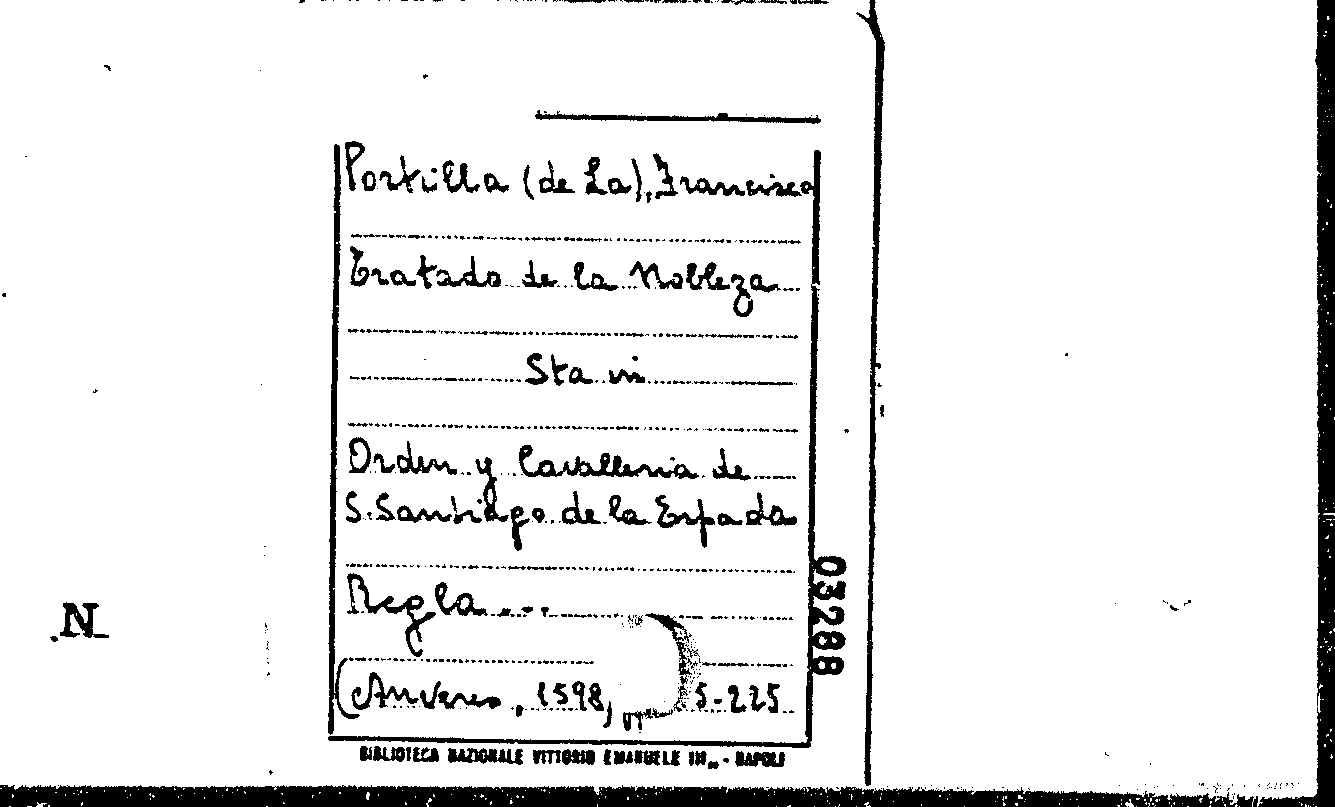 Portilla (de La), Francisco
Tratado de la Nobleza
Sta in
Orden y Cavalleria de
S. Santiago de la Espada
Regla...
(Anveres, 1598, 5-225
BIBLIOTECA NAZIONALE VITTORIO EMANUELE III - NAPOLI
03288
N